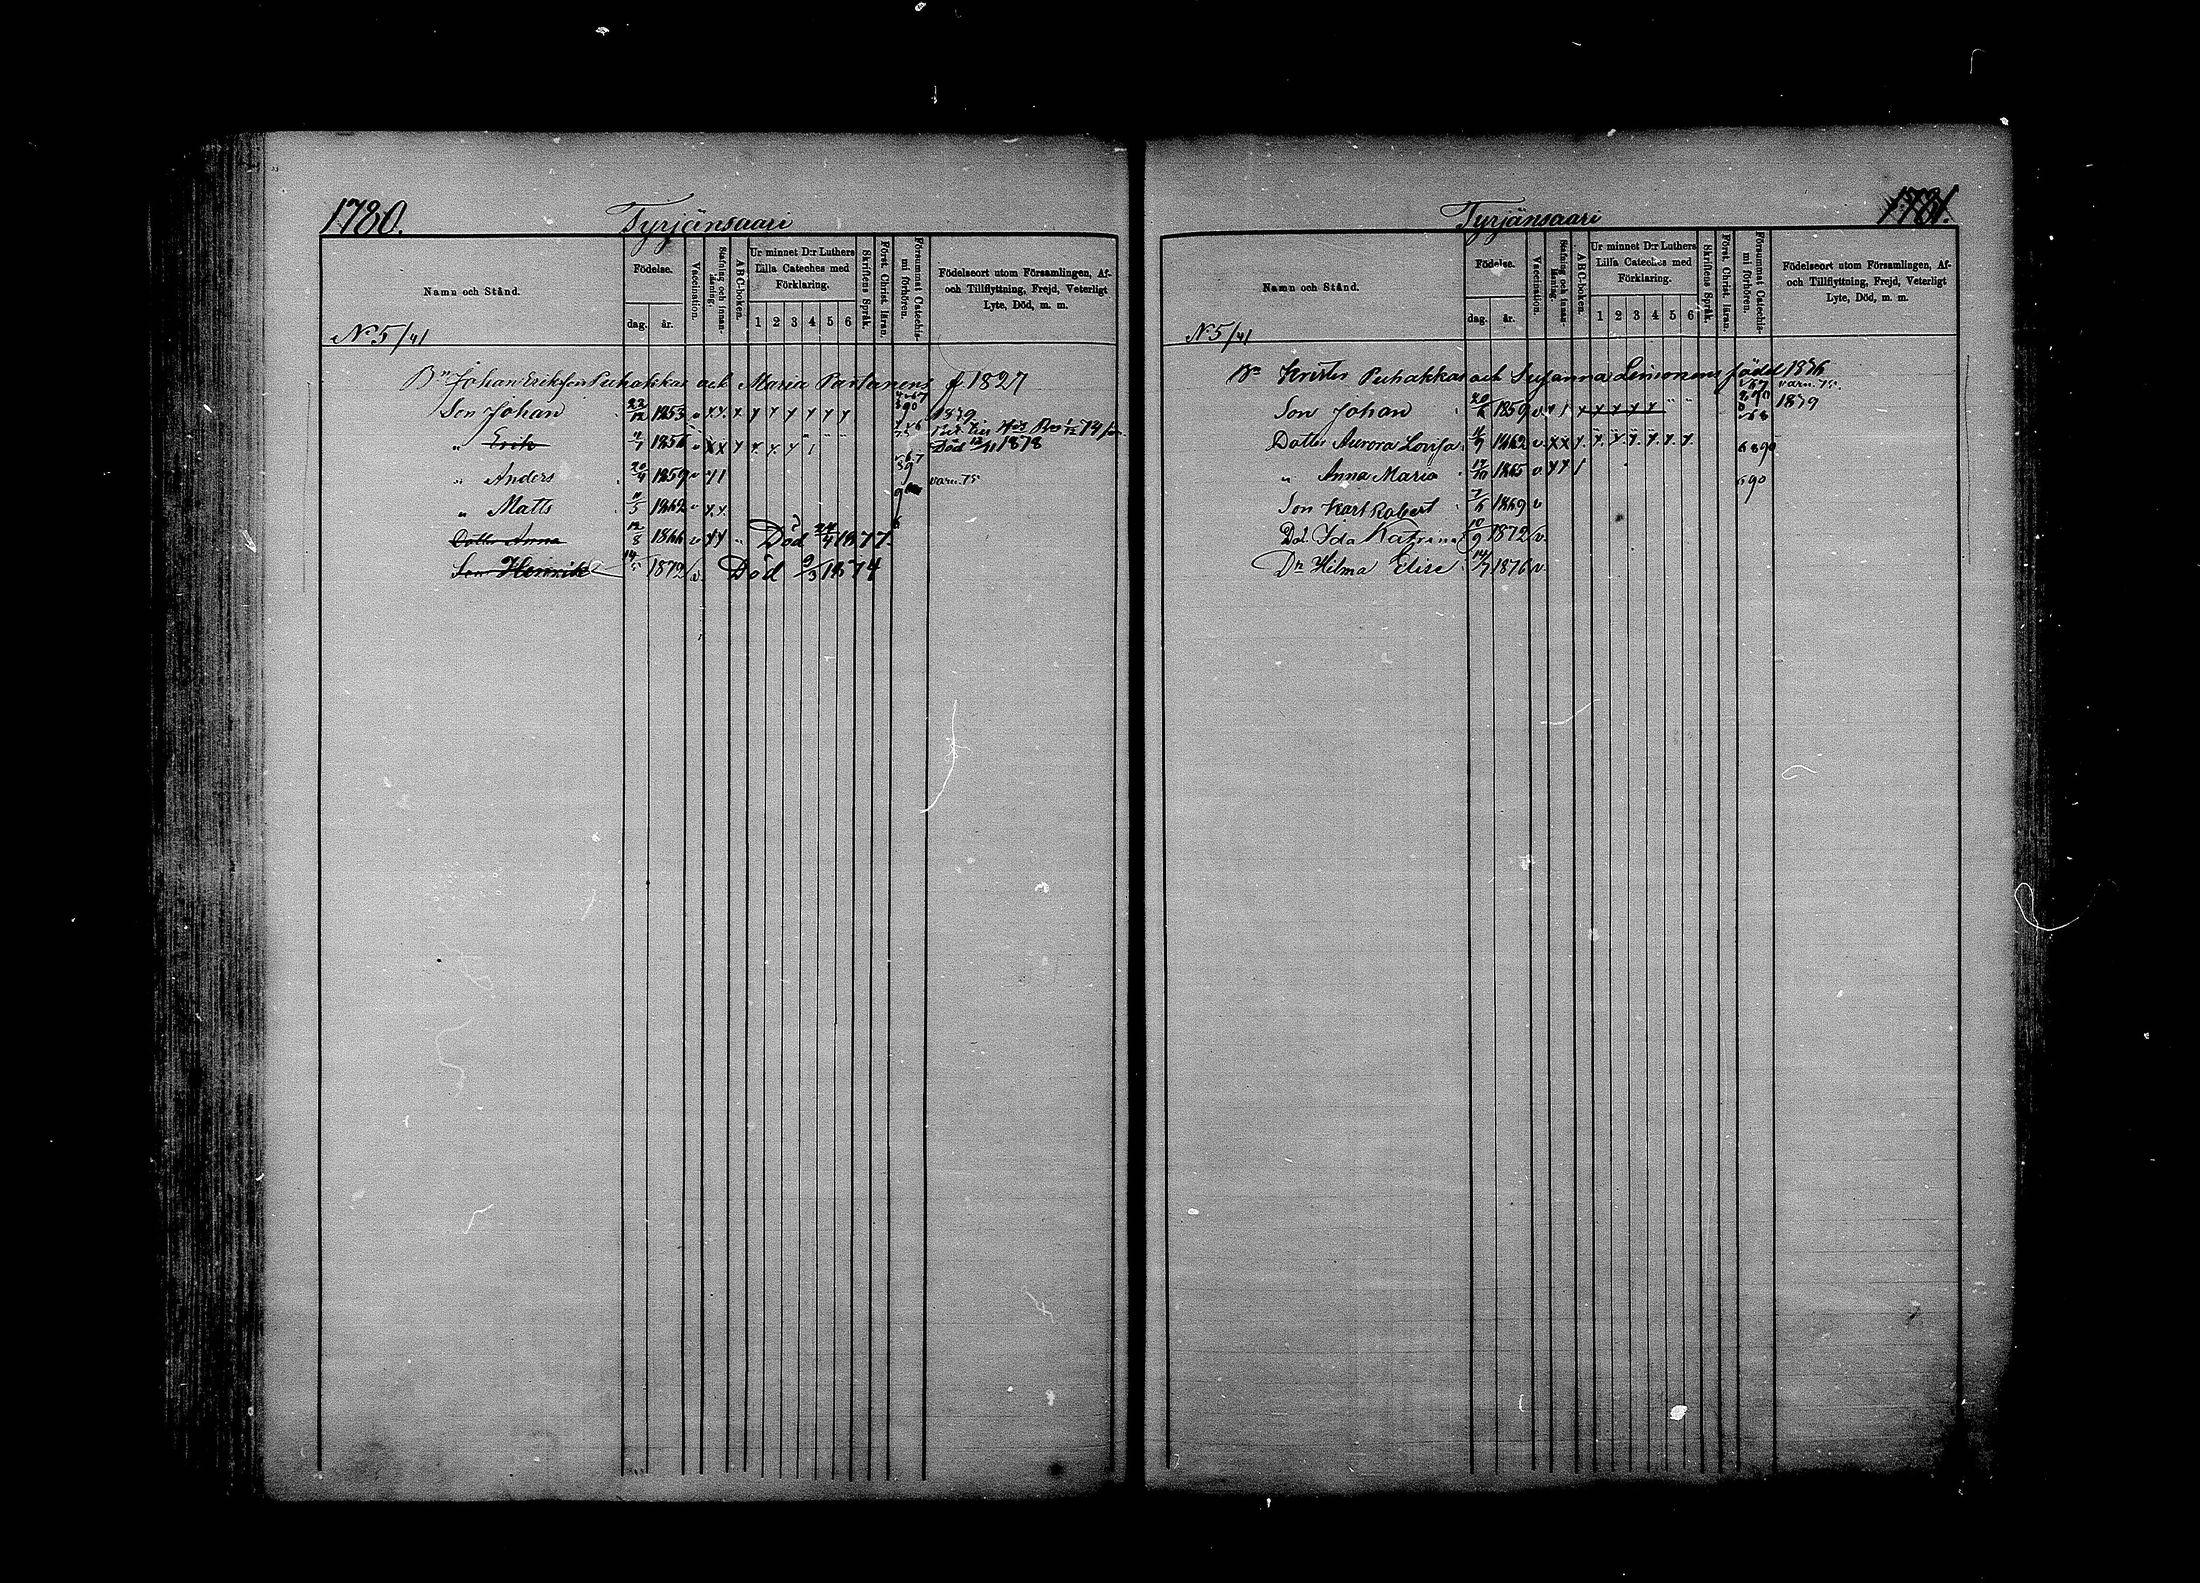 1780.
Tyrjänsaari
Namn och Stånd.
Födelse.
dag.
år.
Vaccination.
Stafning och innan-
läsning.
ABC-boken.
Ur minnet D:r Luthers
Lilla Cateches med
Förklaring.
1 2 3 4 5 6
Skriftens Språk.
Först. Christ. läran.
Försummat Catechis-
mi förhören.
Födelseort utom Församlingen, Af-
och Tillflyttning, Frejd, Veterligt
Lyte, Död, m. m.
No 5/41
Bn Johan Eriksson Puhakkas och Maria Partanens f 1827
Son Johan 22/12 1853 v x x. x x x x x x x 90 1879
" Erik 11/7 1856 v x x x x. x. x 1 Död 12/11 1878
" Anders 20/4 1859 v x 1 varn. 75
" Matts 11/5 1862 v x. x. 9
Dotter Anna 12/8 1866 v x x Död 24/4 1877.
Son Henrik 14/5 1872 v. Död 9/3 1874
1781.
Tyrjänsaari
Namn och Stånd.
Födelse.
dag.
år.
Vaccination.
Stafning och innan-
läsning.
ABC-boken.
Ur minnet D:r Luthers
Lilla Cateches med
Förklaring.
1 2 3 4 5 6
Skriftens Språk.
Först. Christ. läran.
Försummat Catechis-
mi förhören.
Födelseort utom Församlingen, Af-
och Tillflyttning, Frejd, Veterligt
Lyte, Död, m. m.
No 5/41
Bn Krister Puhakkas och Susanna Lemonens född 1836
varn. 75.
Son Johan 20/6 1859 v. x 1 x x x x x 1879
Dotter Aurora Lovisa 11/9 1862 v. x x x. x. x. x. x. x. x. 6 8 90
" Anna Maria 17/10 1865 v x x 1 6 90
Son Karl Robert 7/6 1869 v
Dot. Ida Katrina 10/9 1872 v.
Dn Hilma Elise 14/7 1876 v.